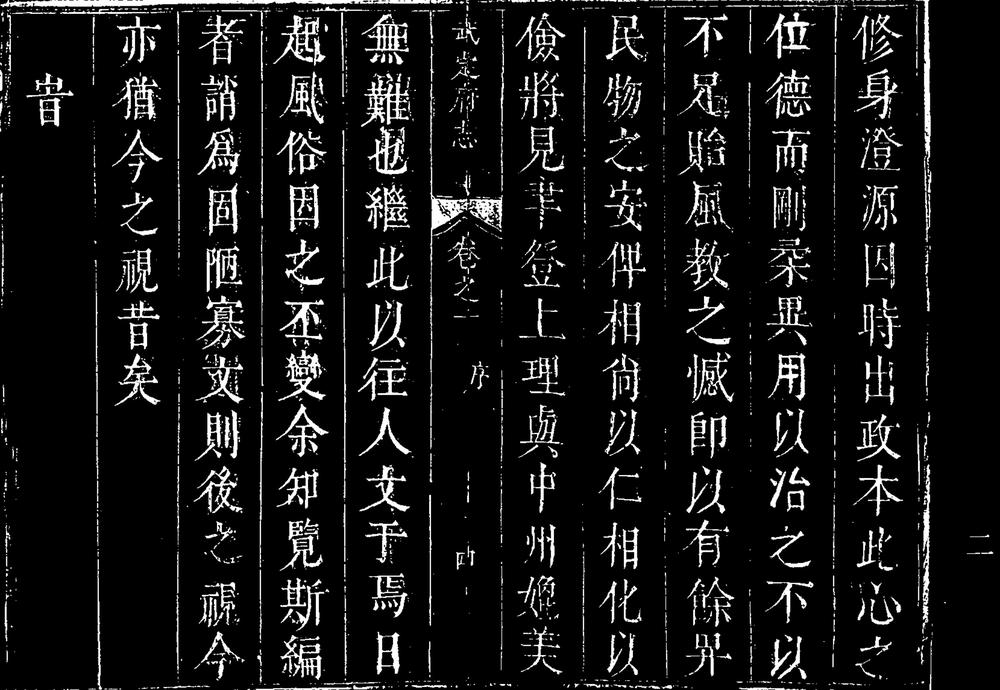 修身澄源因時出政本此心之
位德而剛柔異用以治之不以
不足貽風教之憾即以有餘畀
民物之安俾相尚以仁相化以
儉將見聿登上理與中州媲美
武定府志
卷之一
序
四
無難也繼此以往人文于焉日
起風俗因之丕變余知覽斯編
者誚為固陋寡文則後之視今
亦猶今之視昔矣
旹
二